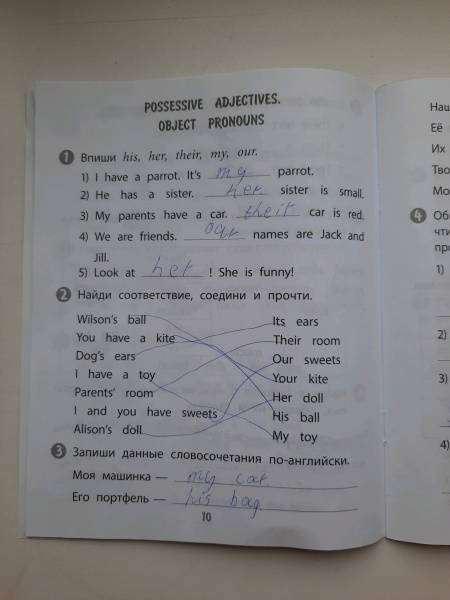 POSSESSIVE ADJECTIVES.
OBJECT PRONOUNS
1 Впиши his, her, their, my, our.
1) I have a parrot. It's my parrot.
2) He has a sister. her sister is small.
3) My parents have a car. their car is red.
4) We are friends. our names are Jack and
Jill.
5) Look at her ! She is funny!
2 Найди соответствие, соедини и прочти.
Wilson's ball Its ears
You have a kite Their room
Dog's ears Our sweets
I have a toy Your kite
Parents' room Her doll
I and you have sweets His ball
Alison's doll My toy
3 Запиши данные словосочетания по-английски.
Моя машинка — my car
Его портфель — his bag
10
Наш
Её
Их
Тво
Мо
4 Об
чти
про
1)
2)
3)
4)